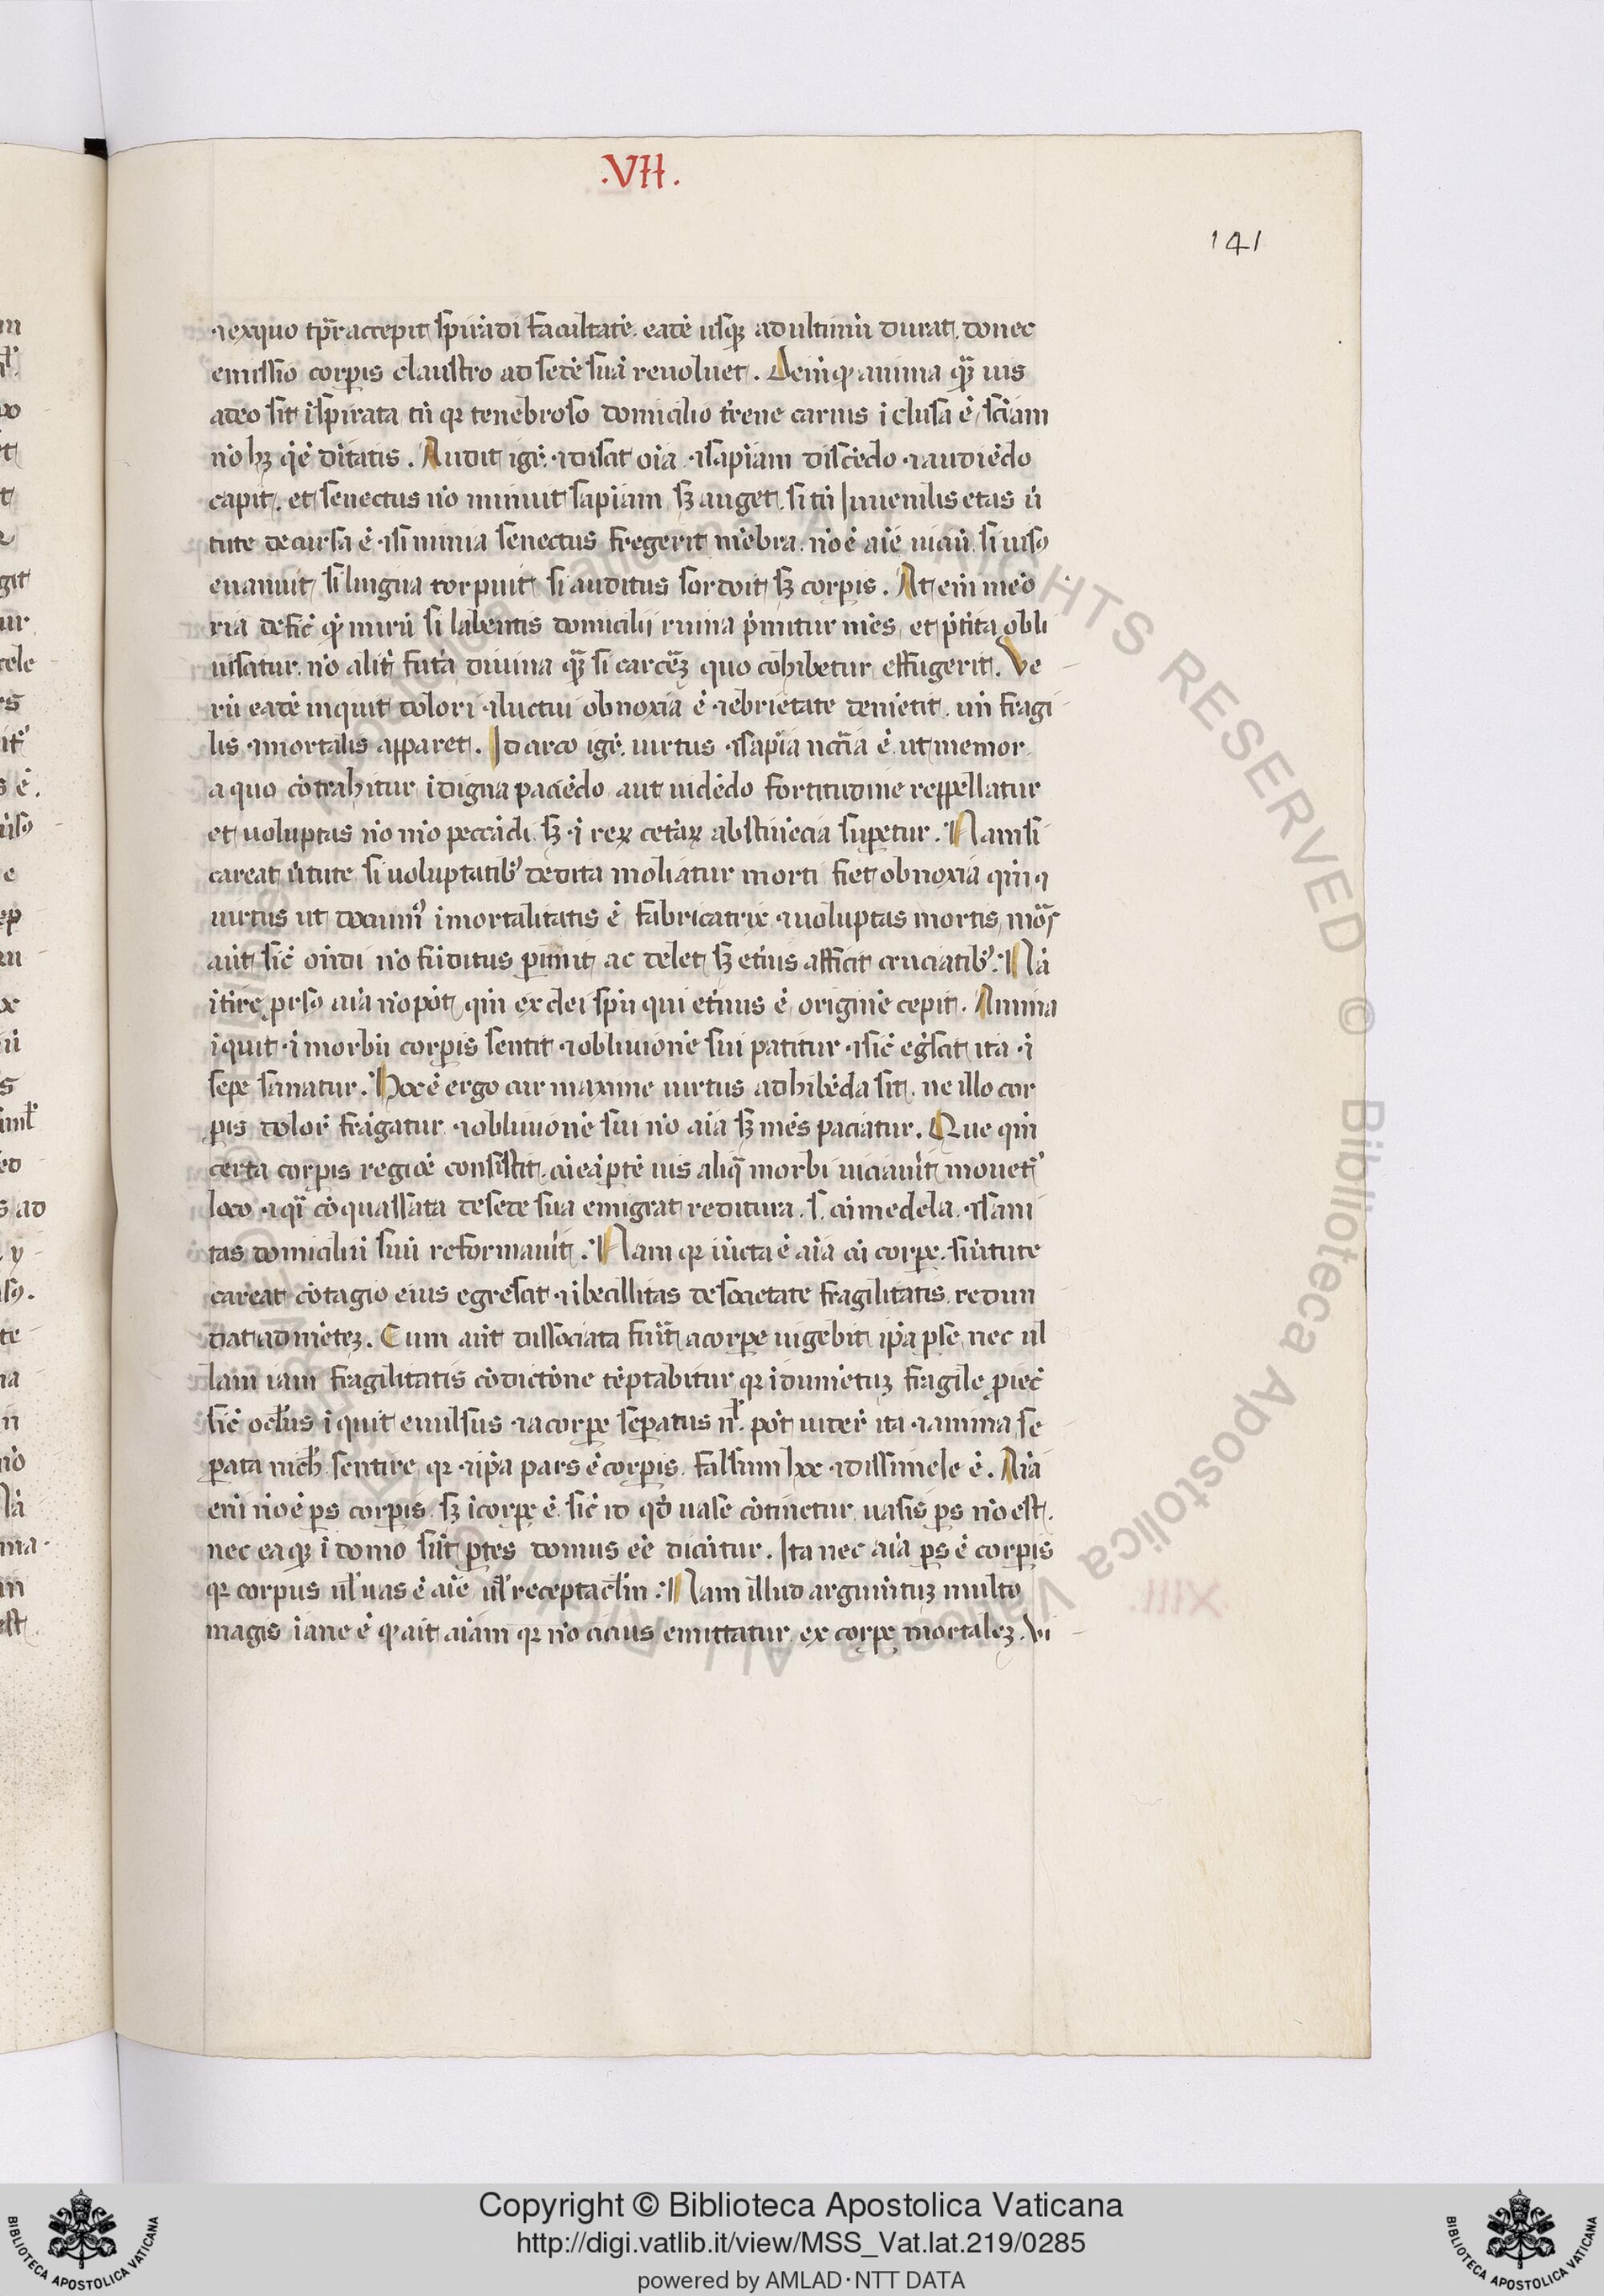 .VII.
141
⁊ exquo tp̄r accepit spirādi facultatē. eadē usq̨ ad ultimū durat. donec
emissio corꝑis claustro ad sedē suā reuoluet. Deinq̨ anima quis
adeo sit ispirata tn̄ qꝛ tenebroso domicilio trene carnis i clusa ē sciam
nō hꝫ q̄ ē ditatis. Audit igr̄. ⁊ discit oīa ⁊ sapiam discēdo ⁊ audiēdo
capit. et senectus nō minuit sapiam sꝫ auget. si tn̄ Iuuenilis etas ū
tute decursa ē ⁊ si nimia senectus fregerit mēbra. nō ē aīe uiciū. si uisꝰ
euanuit, si lingua torpuit, si auditus sordoit sꝫ corꝑis. At eni meō
ria defic̄ qd mirū si labentis domicilii ruina p̄mitur mēs, et p̄tita obli
uiscatur. nō alit̄ futa diuina q̄ꝫ si carcēꝫ quo cohibetur effugerit. Ve
rū eadē inquit dolori ⁊ luctui obnoxia ē ⁊ ebrietate demētit. un̄ fragi
lis ⁊ mortalis apparet. Id circo igr̄. uirtus ⁊ sapīa nc̄cia ē. ut memor
a quo cōtrahitur idigna paciēdo aut uidēdo fortitudine reppellatur
et uoluptas nō mō peccādi. sꝫ ⁊ i reꝝ cetaꝝ abstinēcia suꝑetur. Nam si
careat ūtute si uoluptatibꝰ dedita moliatur morti fiet obnoxia qm̄ ⁊
uirtus ut docuimꝰ imortalitatis ē fabricatrix ⁊ uoluptas mortis, mors
aūt sic̄ ondi nō fūditus ꝑimit ac delet sꝫ et̄nis afficit cruciatibꝰ. Nā
it̄ire prsꝰ aīa nō pōt, qm̄ ex dei spū qui et̄nus ē originē cepit. Anima
iquit ⁊ i morbū corꝑis sentit ⁊ obliuionē sui patitur ⁊ sic̄ eḡscit ita ⁊
sepe sanatur. Hoc ē ergo cur maxime uirtus adhibēda sit. ne illo cor
ꝑis dolor̄ frāgatur ⁊ obliuionē sui nō aīa sꝫ mēs paciatur. Que qm̄
certa corꝑis regiōe consistit. cū eā ꝑtē uis aliq̄ morbi uiciauīt mouet̄
loco ⁊ qi cōquassata de sede sua emigrat reditura. s. cū medela ⁊ sani
tas domiciliū suū reformauīt. Nam qꝛ iūcta ē aīa cū corꝑe. si ūtute
careat cōtagio eius egrescit ⁊ ibecillitas de societate fragilitatis redun
dat ad mētēꝫ. Cum aūt dissociata fuīt a corꝑe uigebit ip̄a ꝑ se, nec ul
lam iam fragilitatis cōdictōne tēptabitur, qꝛ idumētuꝫ fragile piec̄
sic̄ oclꝰus iquit euulsus ⁊ a corꝑe seꝑatus nl. pōt uider̄ ita ⁊ anima se
ꝑata nich. sentire, qꝛ ⁊ ip̄a pars ē corꝑis. falsum hoc ⁊ dissimele ē. Aīa
eni nō ē ꝑs corꝑis sꝫ i corꝑe ē. sic̄ id qd uase cōtinetur, uasis ꝑs nō est.
nec ea q̨ i domo sūt ꝑtes domus eē dicūtur. Ita nec aīa ꝑs ē corꝑis
qꝛ corpus ul uas ē aīe ul receptaclm. Nam illud argumtuꝫ multo
magis iane ē q̨ ait aīam qꝛ nō cicius emittatur ex corꝑe mortalēꝫ. Vi
Copyright © Biblioteca Apostolica Vaticana
http://digi.vatlib.it/view/MSS_Vat.lat.219/0285
powered by AMLAD·NTT DATA